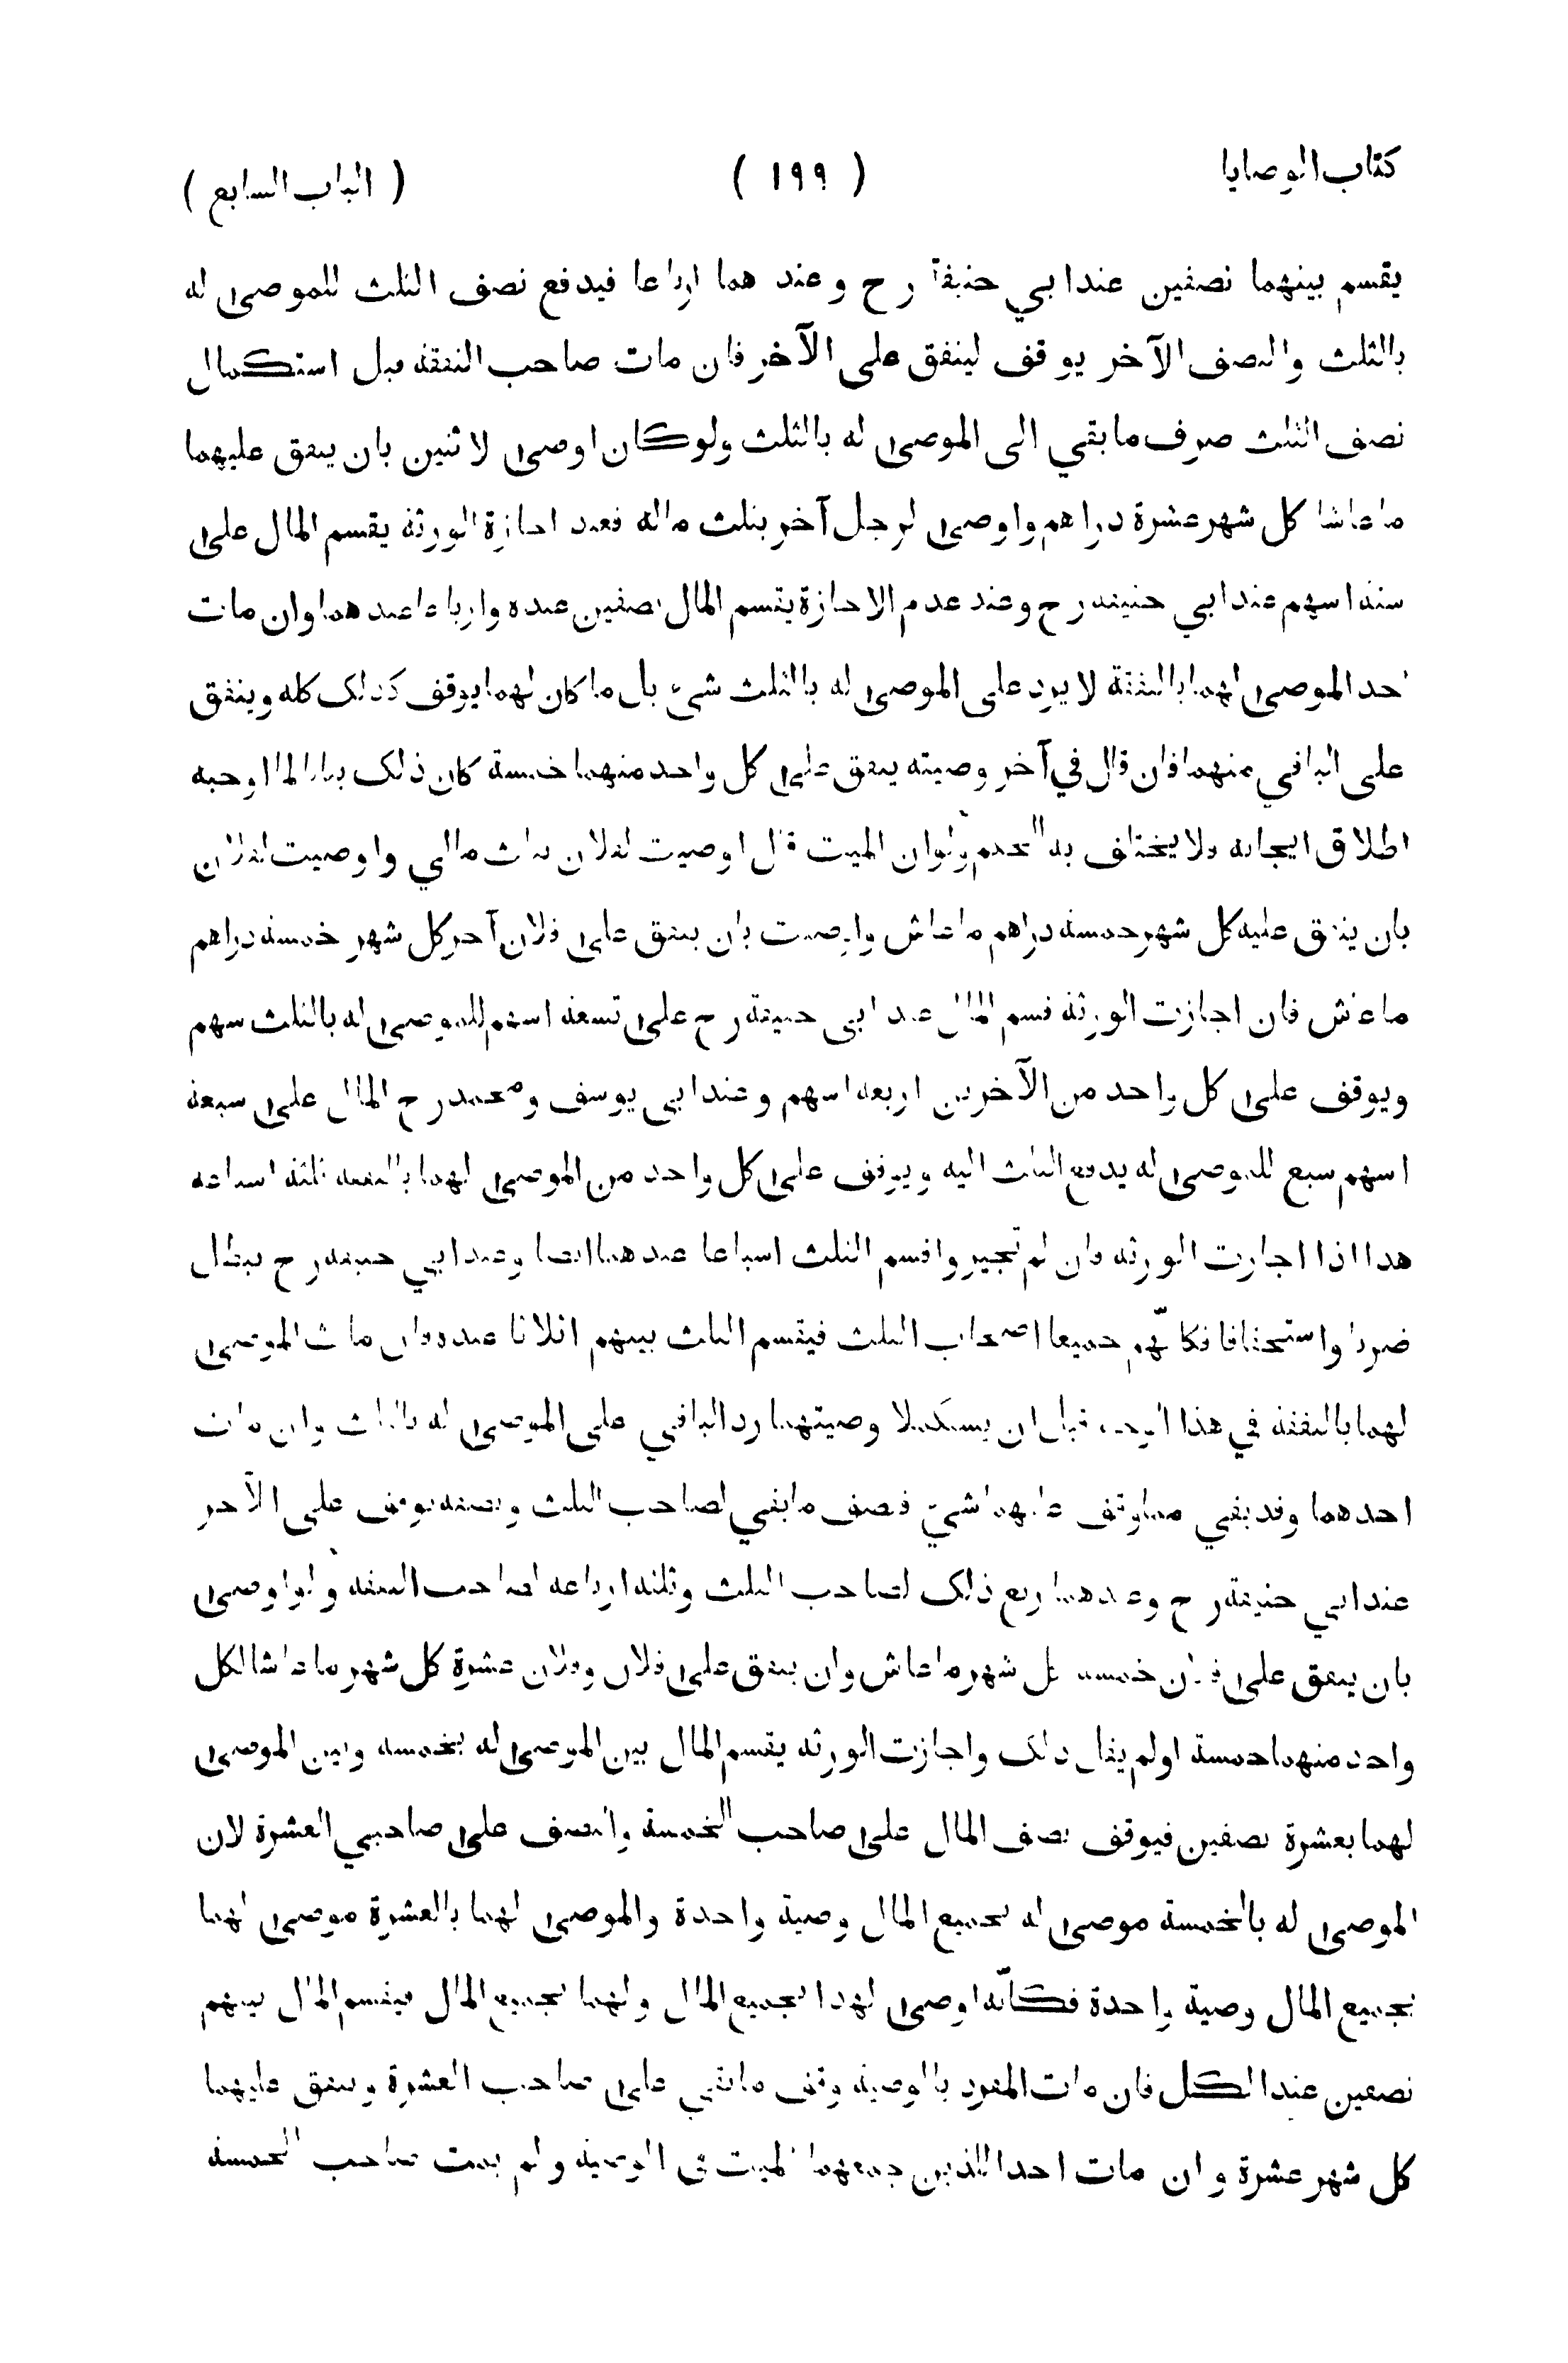 كتاب الوصايا
( ١٩٩ )
( الباب السابع )
يقسم بينهما نصفين عند ابي حنيفة رح وعند هما ارباعا فيدفع نصف الثلث للموصى له
بالثلث والنصف الآخر يوقف لينفق على الآخر فان مات صاحب النفقة قبل استكمال
نصف الثلث صرف ما بقي الى الموصى له بالثلث ولو كان اوصى لاثنين بان ينفق عليهما
ما عاشا كل شهر عشرة دراهم واوصى لرجل آخر بثلث ماله فعند اجازة الورثة يقسم المال على
ستة اسهم عند ابي حنيفة رح وعند عدم الاجازة يقسم المال نصفين عنده وارباعا عند هما وان مات
احد الموصى لهما بالنفقة لا يرد على الموصى له بالثلث شيء بل ما كان لهما يوقف كذلك كله وينفق
على الباقي منهما فان قال في آخر وصيته ينفق على كل واحد منهما خمسة كان ذلك بيانا لما اوجبه
اطلاق ايجابه ولا يختلف به الحكم ولو ان الميت قال اوصيت لفلان بثلث مالي واوصيت لفلان
بان ينفق عليه كل شهر خمسة دراهم ما عاش واوصيت بان ينفق على فلان آخر كل شهر خمسة دراهم
ما عاش فان اجازت الورثة قسم المال عند ابي حنيفة رح على تسعة اسهم للموصى له بالثلث سهم
ويوقف على كل واحد من الآخرين اربعة اسهم وعند ابي يوسف ومحمد رح المال على سبعة
اسهم سبع للموصى له يدفع الثلث اليه ويوقف على كل واحد من الموصى لهما بالنفقة ثلثة اسباعه
هذا اذا اجازت الورثة وان لم تجيزوا قسم الثلث اسباعا عند هما ايضا وعند ابي حنيفة رح يبطل
ضربا واستحقاقا فكانّهم جميعا اصحاب الثلث فيقسم الثلث بينهم اثلاثا عنده وان مات الموصى
لهما بالنفقة في هذا الوجه قبل ان يستكملا وصيتهما رد الباقي على الموصى له بالثلث وان مات
احدهما وقد بقي مما وقف عليهما شيء فنصف ما بقي لصاحب الثلث ونصفه يوقف على الآخر
عند ابي حنيفة رح وعند هما ربع ذلك لصاحب الثلث وثلثة ارباعه لصاحب النفقة ولو اوصى
بان ينفق على فلان خمسة كل شهر ما عاش وان ينفق على فلان وفلان عشرة كل شهر ما عاشا لكل
واحد منهما خمسة اولم يقل ذلك واجازت الورثة يقسم المال بين الموصى له بخمسة وبين الموصى
لهما بعشرة نصفين فيوقف نصف المال على صاحب الخمسة والنصف على صاحبي العشرة لان
الموصى له بالخمسة موصى له بجميع المال وصية واحدة والموصى لهما بالعشرة موصى لهما
بجميع المال وصية واحدة فكانّه اوصى لهذا بجميع المال ولهما بجميع المال فيقسم المال بينهم
نصفين عند الكل فان مات المفرد بالوصية وقف ما بقي على صاحب العشرة وينفق عليهما
كل شهر عشرة وان مات احد اللذين جمعهما الميت في الوصية ولم يمت صاحب الخمسة